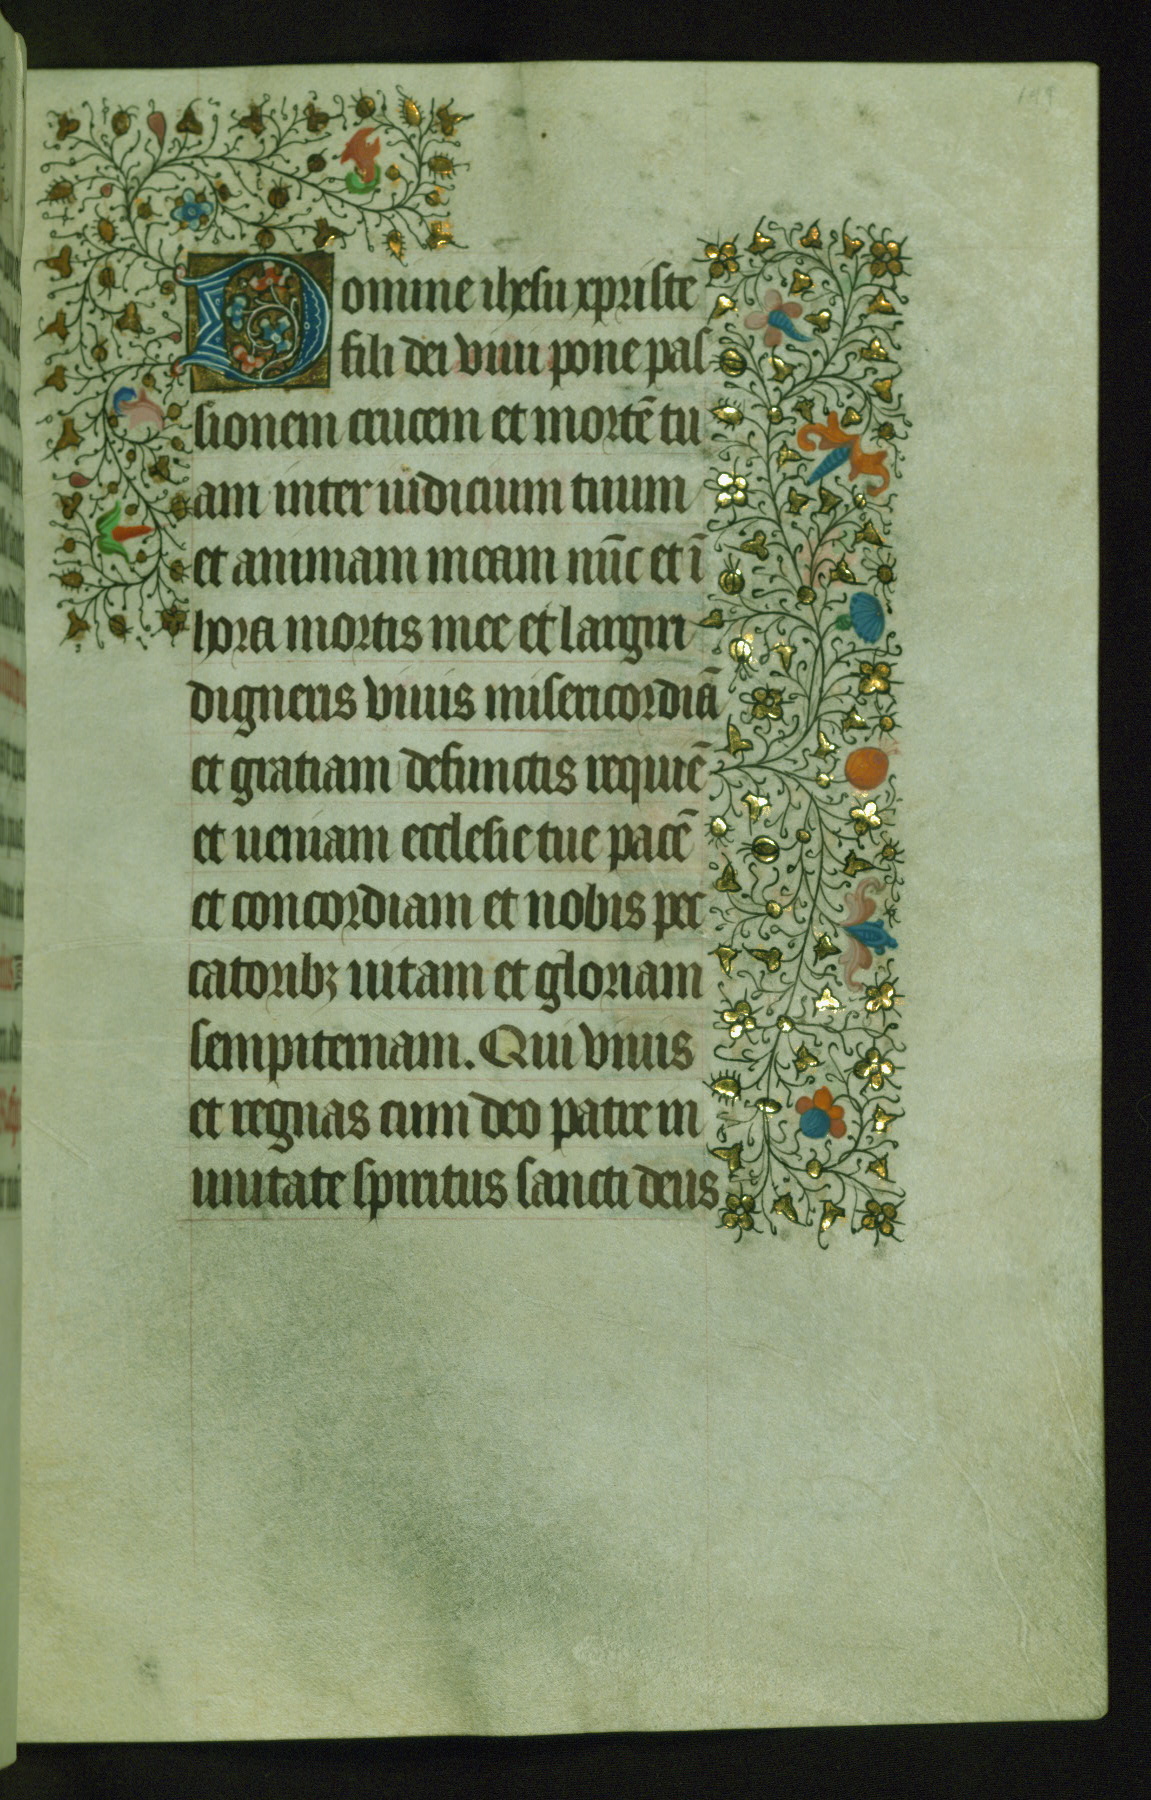 Domine ihesu xpriste
fili dei viui pone pas
sionem crucem et mortē tu
am inter iudicium tuum
et animam meam nūc et ī
hora mortis mee et largiri
digneris viuis misericordiā
et gratiam defunctis requiē
et ueniam ecclesie tue pacē
et concordiam et nobis pec
catoribꝫ uitam et gloriam
sempiternam. Qui viuis
et regnas cum deo patre in
unitate spiritus sancti deus